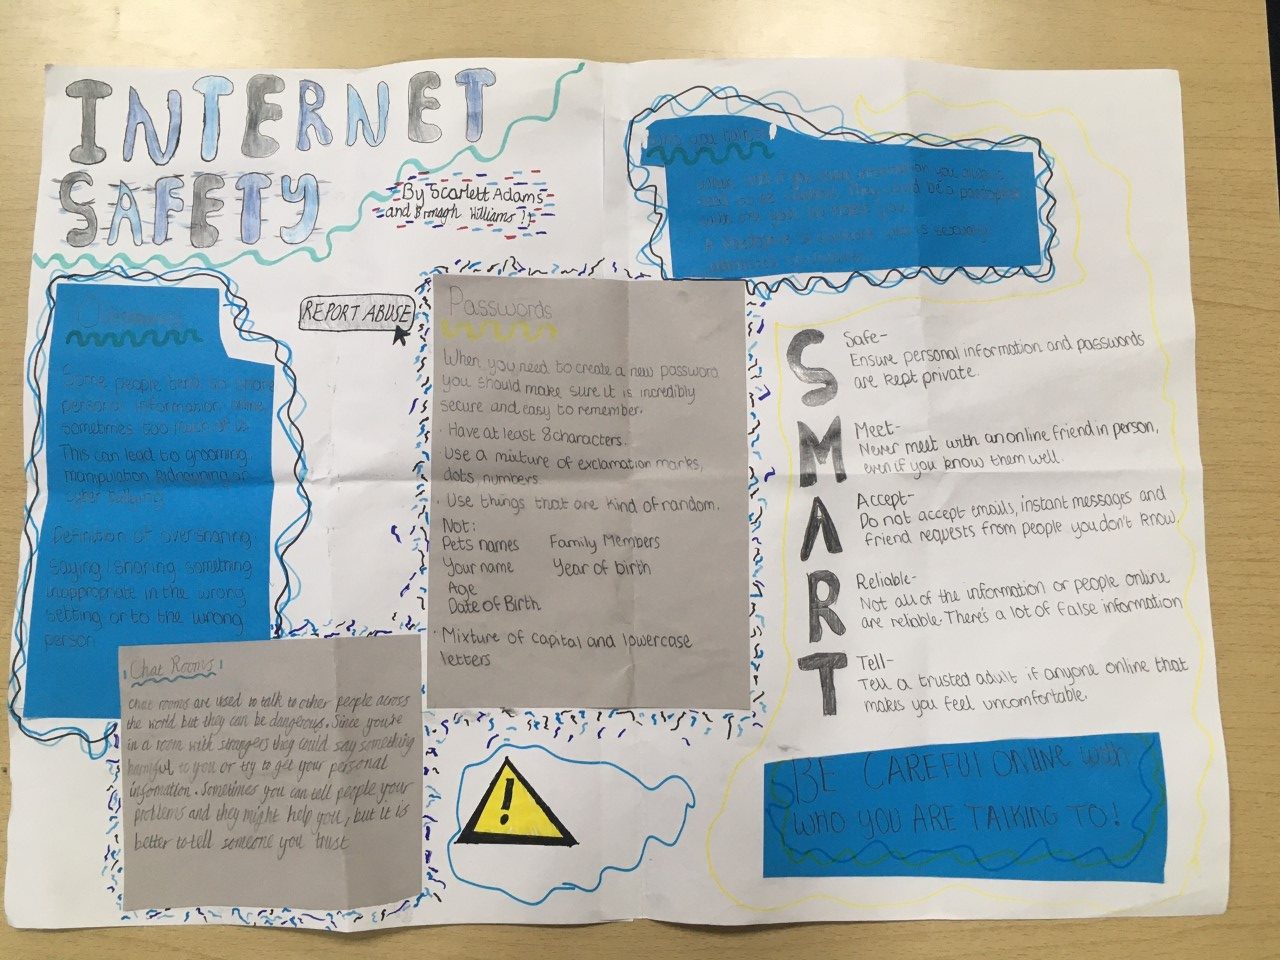 INTERNET
SAFETY
By Scarlett Adams
and Bronagh Williams !!
When you need to create a new password
you should make sure it is incredibly
secure and easy to remember.
· Have at least 8 characters.
· Use a mixture of exclamation marks,
dots, numbers
· Use things that are kind of random.
Not:
Pets names Family Members
Your name Year of birth
Age
Date of Birth
· Mixture of capital and lowercase
letters
Passwords
REPORT ABUSE
Some people tend to share
personal information online,
sometimes too much of us
This can lead to grooming,
manipulation kidnapping or
cyber bullying
Definition of oversharing:
saying/sharing something
inappropriate in the wrong
setting or to the wrong
person.
Chat Rooms
Chat rooms are used to talk to other people across
the world but they can be dangerous. Since you're
in a room with strangers they could say something
harmful to you or try to get your personal
information. Sometimes you can tell people your
problems and they might help you, but it is
better to tell someone you trust
!
S
Safe-
Ensure personal information and passwords
are kept private.
M
Meet-
Never meet with an online friend in person,
even if you know them well.
A
Accept-
Do not accept emails, instant messages and
friend requests from people you don't know.
R
Reliable-
Not all of the information or people online
are reliable. There's a lot of false information
T
Tell-
Tell a trusted adult if anyone online that
makes you feel uncomfortable.
BE CAREFUL ONLINE with
WHO YOU ARE TALKING TO!